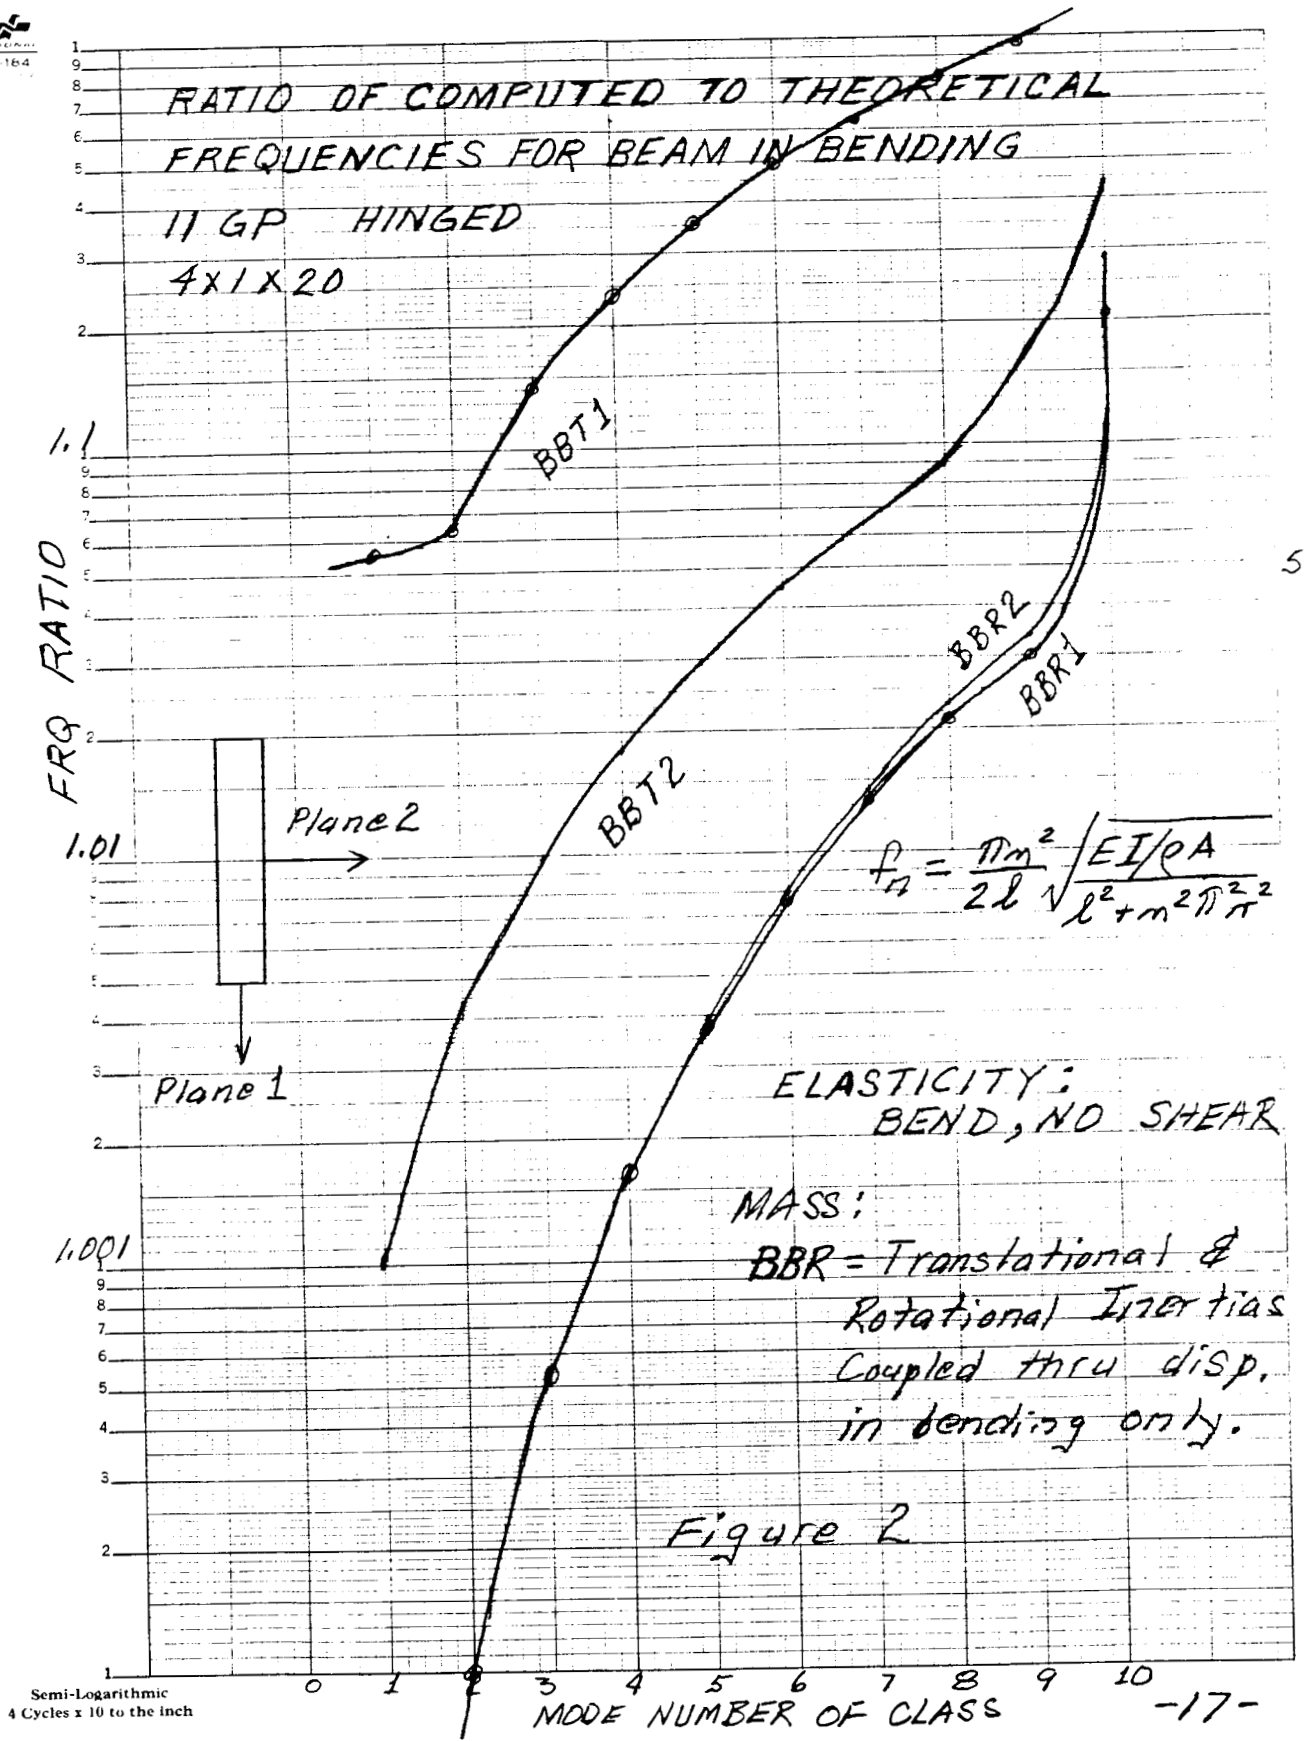 184
RATIO OF COMPUTED TO THEORETICAL
FREQUENCIES FOR BEAM IN BENDING
11 GP HINGED
4x1x20
1
9
8
7
6
5
4
3
2
1.1
1
9
8
7
6
5
4
3
2
1.01
5
4
3
2
1.001
1
9
8
7
6
5
4
3
2
1
FRQ RATIO
BBT1
BBT2
BBR2
BBR1
5
Plane 2
Plane 1
fn = πn²/2l √(EI/ρA / l²+n²π²r²)
ELASTICITY:
BEND, NO SHEAR
MASS:
BBR = Translational &
Rotational Inertias
Coupled thru disp.
in bending only.
Figure 2
0 1 2 3 4 5 6 7 8 9 10
MODE NUMBER OF CLASS
-17-
Semi-Logarithmic
4 Cycles x 10 to the inch